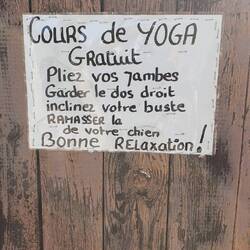 Cours de YOGA
Gratuit
Pliez vos jambes
Garder le dos droit
inclinez votre buste
RAMASSER la
de votre chien
Bonne RELaxation !